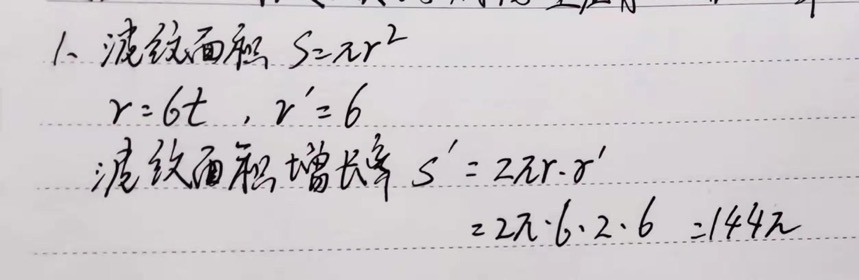 1、波纹面积 S=πr²
r=6t , r'=6
波纹面积增长率 S'=2πr·r'
=2π·6·2·6 =144π